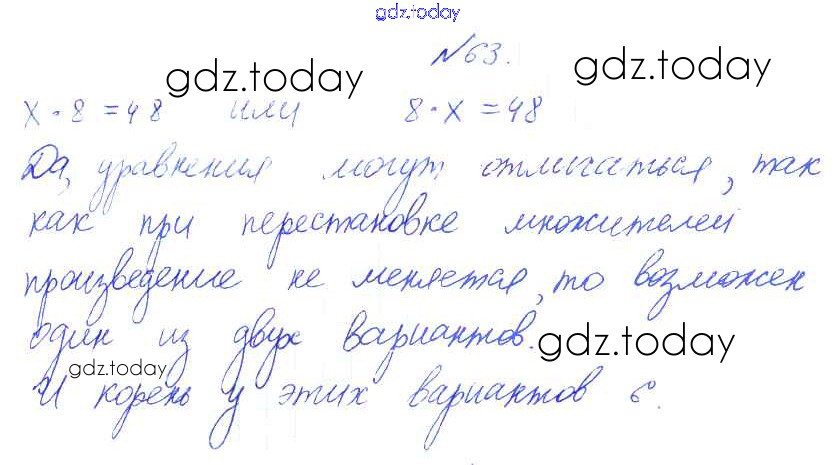 gdz.today
№63.
gdz.today gdz.today
x · 8 = 48 или 8 · x = 48
Да, уравнения могут отличаться, так
как при перестановке множителей
произведение не меняется, то возможен
один из двух вариантов.
gdz.today
gdz.today
И корень у этих вариантов 6.